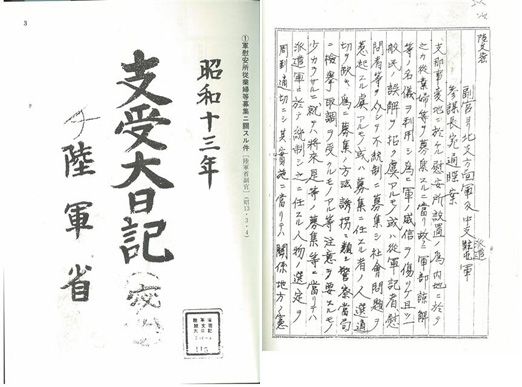 3
①軍慰安所従業婦等募集ニ關スル件〔陸軍省副官〕(昭13・3・4)
昭和十三年
支受大日記
陸軍省
陸支密
副官ヨリ北支方面軍及中支派遣軍
参謀長宛通牒案
支那事變地ニ於ケル慰安所設置ノ為内地ニ於テ
之カ従業婦等ヲ募集スルニ當リ故ニ軍部諒解
等ノ名儀ヲ利用シ為ニ軍ノ威信ヲ傷ツケ且ツ一
般民ノ誤解ヲ招ク虞アルモノ或ハ従軍記者慰
問者等ヲ介シテ不統制ニ募集シ社會問題ヲ
惹起スル虞アルモノ或ハ募集ニ任スル者ノ人選適
切ヲ欠キ為ニ募集ノ方法誘拐ニ類シ警察當局
ニ検擧取調ヲ受クルモノアル等注意ヲ要スルモノ
少カラサルニ就テハ将来是等ノ募集等ニ當リテハ
派遣軍ニ於テ統制シ之ニ任スル人物選定ヲ
周到適切ニシ其實施ニ當リテハ関係地方ノ憲